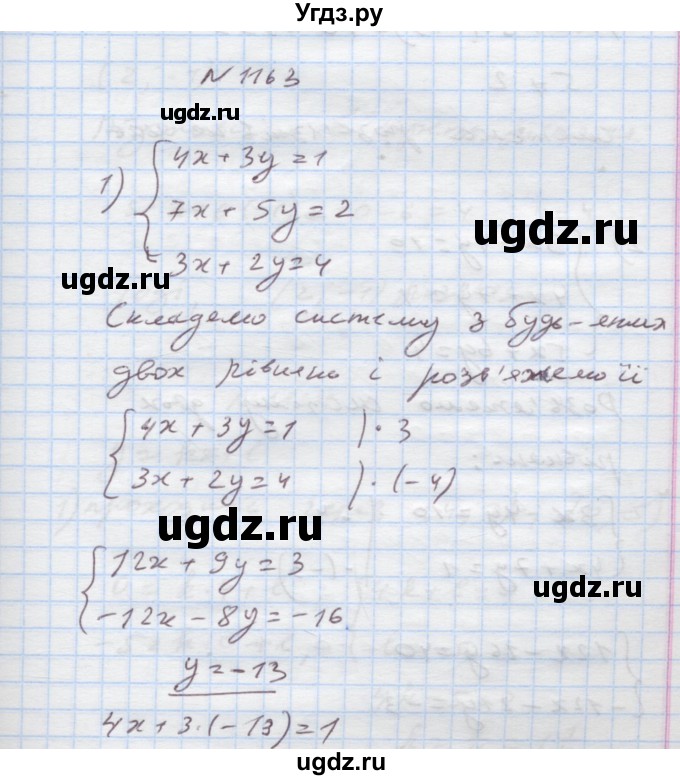 Угдз.ру
N 1163
ugdz.ru
1) { 4x + 3y = 1
7x + 5y = 2
ugdz.ru
3x + 2y = 4
ugdz.ru
Складемо систему з будь-яких
двох рівнянь і розв'яжемо її
{ 4x + 3y = 1 | · 3
3x + 2y = 4 | · (-4)
ugdz.ru
ugdz.ru
{ 12x + 9y = 3
-12x - 8y = -16
y = -13
ugdz.ru
4x + 3·(-13) = 1
ugdz.ru